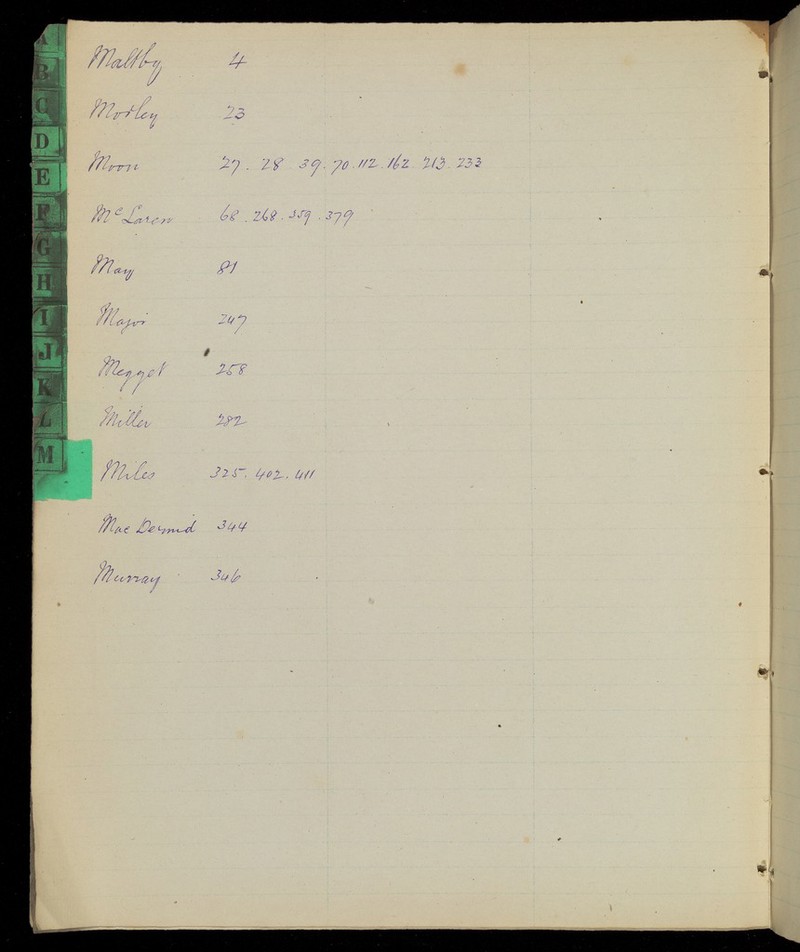 A
B
C
D
E
F
G
H
I
J
K
L
M
Maltby 4
Morley 23
Moon 27. 28. 39. 70. 112. 162. 213. 233
McLaren 68. 268. 359. 379
May 81
Major 247
Megget 258
Miller 282
Miles 325. 402. 411
Mac Dermid 344
Murray 346